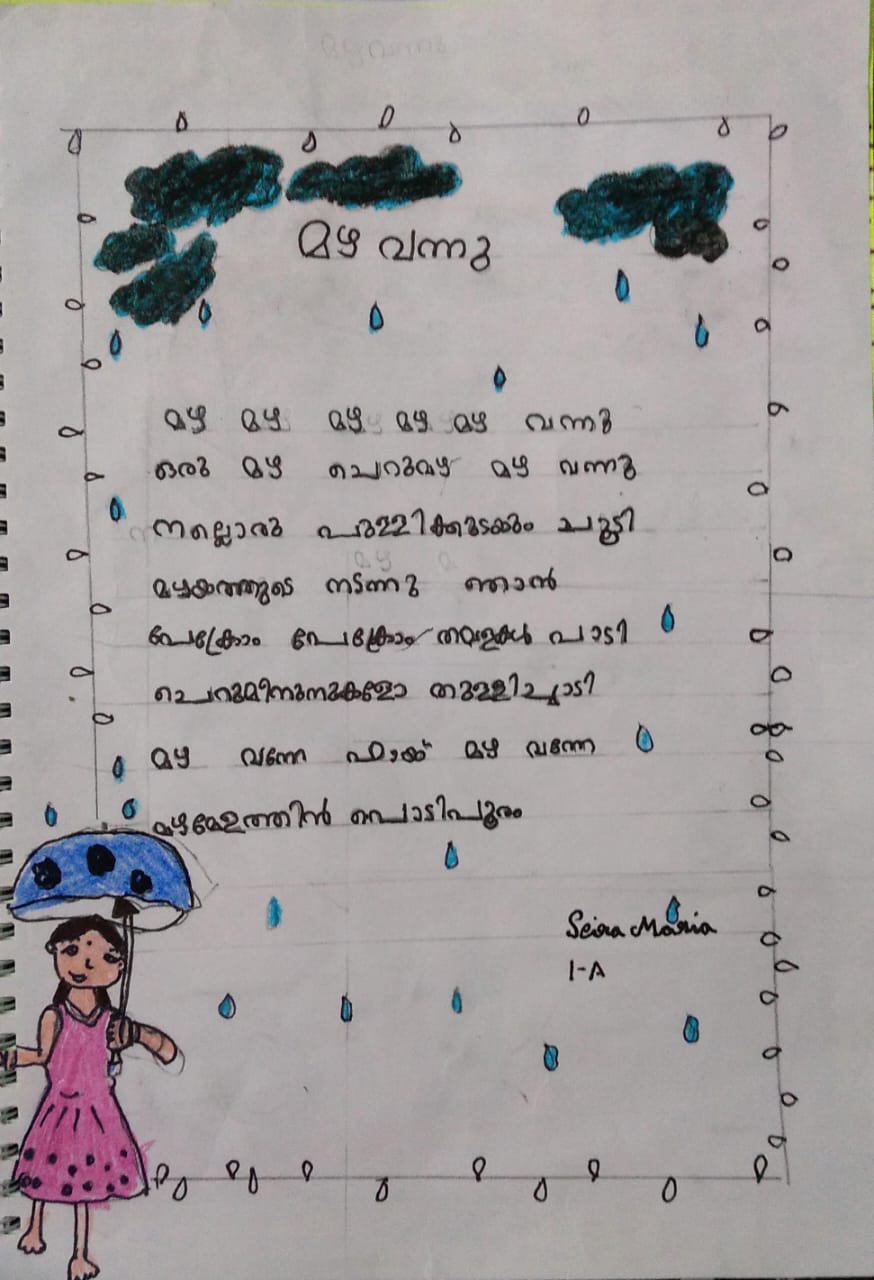 മഴ വന്നു
മഴ മഴ മഴ മഴ മഴ വന്നു
ഒരു മഴ ചെറുമഴ മഴ വന്നു
നല്ലൊരു പുള്ളിക്കുടക്കും ചൂടി
മഴയത്തൂടെ നടന്നു ഞാൻ
പേക്രോം പേക്രോം തവളകൾ പാടി
ചെറുമീനുകളോ തുള്ളിച്ചാടി
മഴ വന്നേ ഹായ് മഴ വന്നേ
മഴമേളത്തിൻ പൊടിപൂരം
Seira Maria
1-A